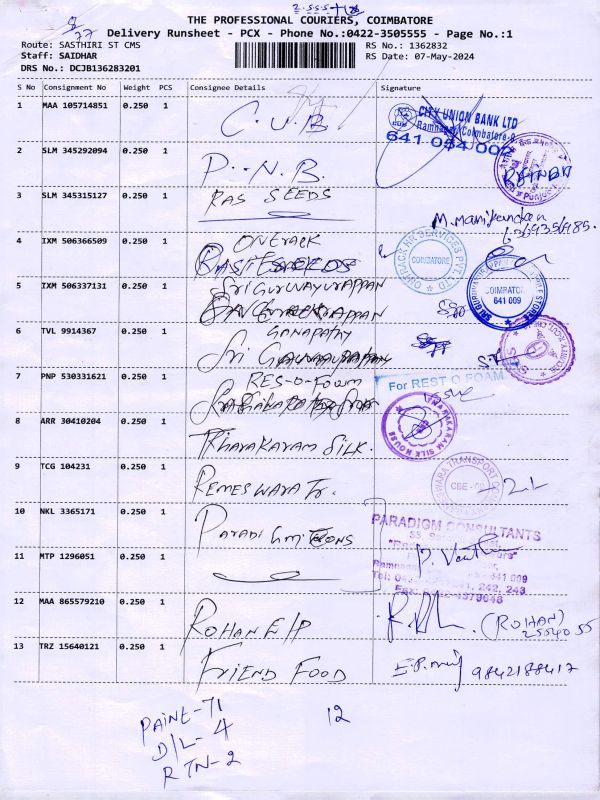 THE PROFESSIONAL COURIERS, COIMBATORE
Delivery Runsheet - PCX - Phone No.:0422-3505555 - Page No.:1
Route: SASTHIRI ST CMS
Staff: SAIDHAR
DRS No.: DCJB136283201
RS No.: 1362832
RS Date: 07-May-2024
S No Consignment No Weight PCS Consignee Details Signature
1 MAA 105714851 0.250 1 C.U.B
CITY UNION BANK LTD
Ramnagar, Coimbatore-9
641 054 002
2 SLM 345292094 0.250 1 P.N.B.
3 SLM 345315127 0.250 1 RAS SEEDS
M. Manikandan
4 IXM 506366509 0.250 1 ONTRACK
ONTRACK HR SERVICES PVT LTD
COIMBATORE
5 IXM 506337131 0.250 1 Sri GURUVAYURAPPAN
COIMBATORE
641 009
6 TVL 9914367 0.250 1 GANAPATHY
Sri
7 PNP 530331621 0.250 1 RES-O-FOAM
For REST O FOAM
8 ARR 30410204 0.250 1 THARAKARAM SILK.
THARAKARAM SILK HOUSE
9 TCG 104231 0.250 1 REMESWARA Tr.
CBE - 
10 NKL 3365171 0.250 1 PARADIGM
PARADIGM CONSULTANTS
11 MTP 1296051 0.250 1
641 009
12 MAA 865579210 0.250 1 ROHAN E/P
(ROHAN)
13 TRZ 15640121 0.250 1 FRIEND FOOD
9842188417
PAINE-71
D/L-4
RTN-2
12